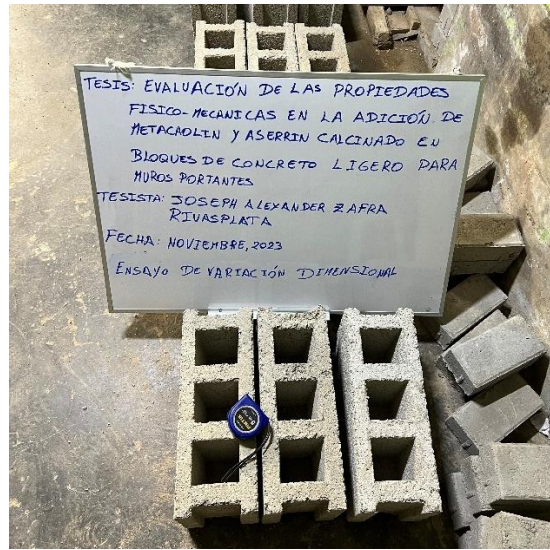 TESIS: EVALUACIÓN DE LAS PROPIEDADES
FISICO-MECANICAS EN LA ADICIÓN DE
METACAOLIN Y ASERRIN CALCINADO EN
BLOQUES DE CONCRETO LIGERO PARA
MUROS PORTANTES
TESISTA: JOSEPH ALEXANDER ZAFRA
RIVASPLATA
FECHA: NOVIEMBRE, 2023
ENSAYO DE VARIACIÓN DIMENSIONAL